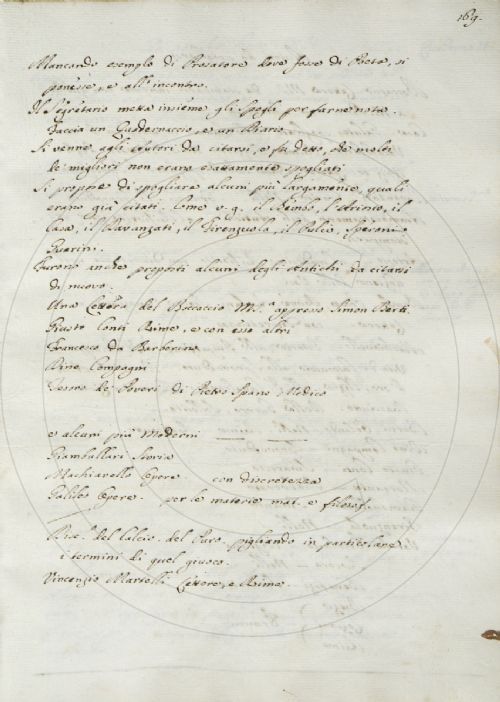 169.
Mancando esempio di Prosatore dove fosse di Poeta, si
ponesse, e all'incontro.
Il Segretario metta insieme gli Spogli per farne nota.
Faccia un Quadernaccio, e un Diario.
Si venne agli Autori da citarsi, e fu detto, che molti
de' migliori non erano esattamente spogliati
Si propose di spogliare alcuni più largamente, quali
erano già citati. Come v.g. il Bembo, l'Ariosto, il
Casa, il Davanzati, il Firenzuola, il Pulci, Speroni
Guarini.
Furono anche proposti alcuni degli Antichi da citarsi
di nuovo.
Una Lettera del Boccaccio Ms.ª appresso Simon Berti.
Giusto Conti Rime, e con esso altri
Francesco da Barberino
Dino Compagni
Tesoro de' Poveri di Pietro Spano Medico
e alcuni più Moderni
Giambullari Storia
Machiavello Opere. con discretezza
Galileo Opere. per le materie mat. e filosof.
del Calcio. del pigliando in particolare
i termini di quel giuoco.
Vincenzio Martelli Lettere, e Rime.